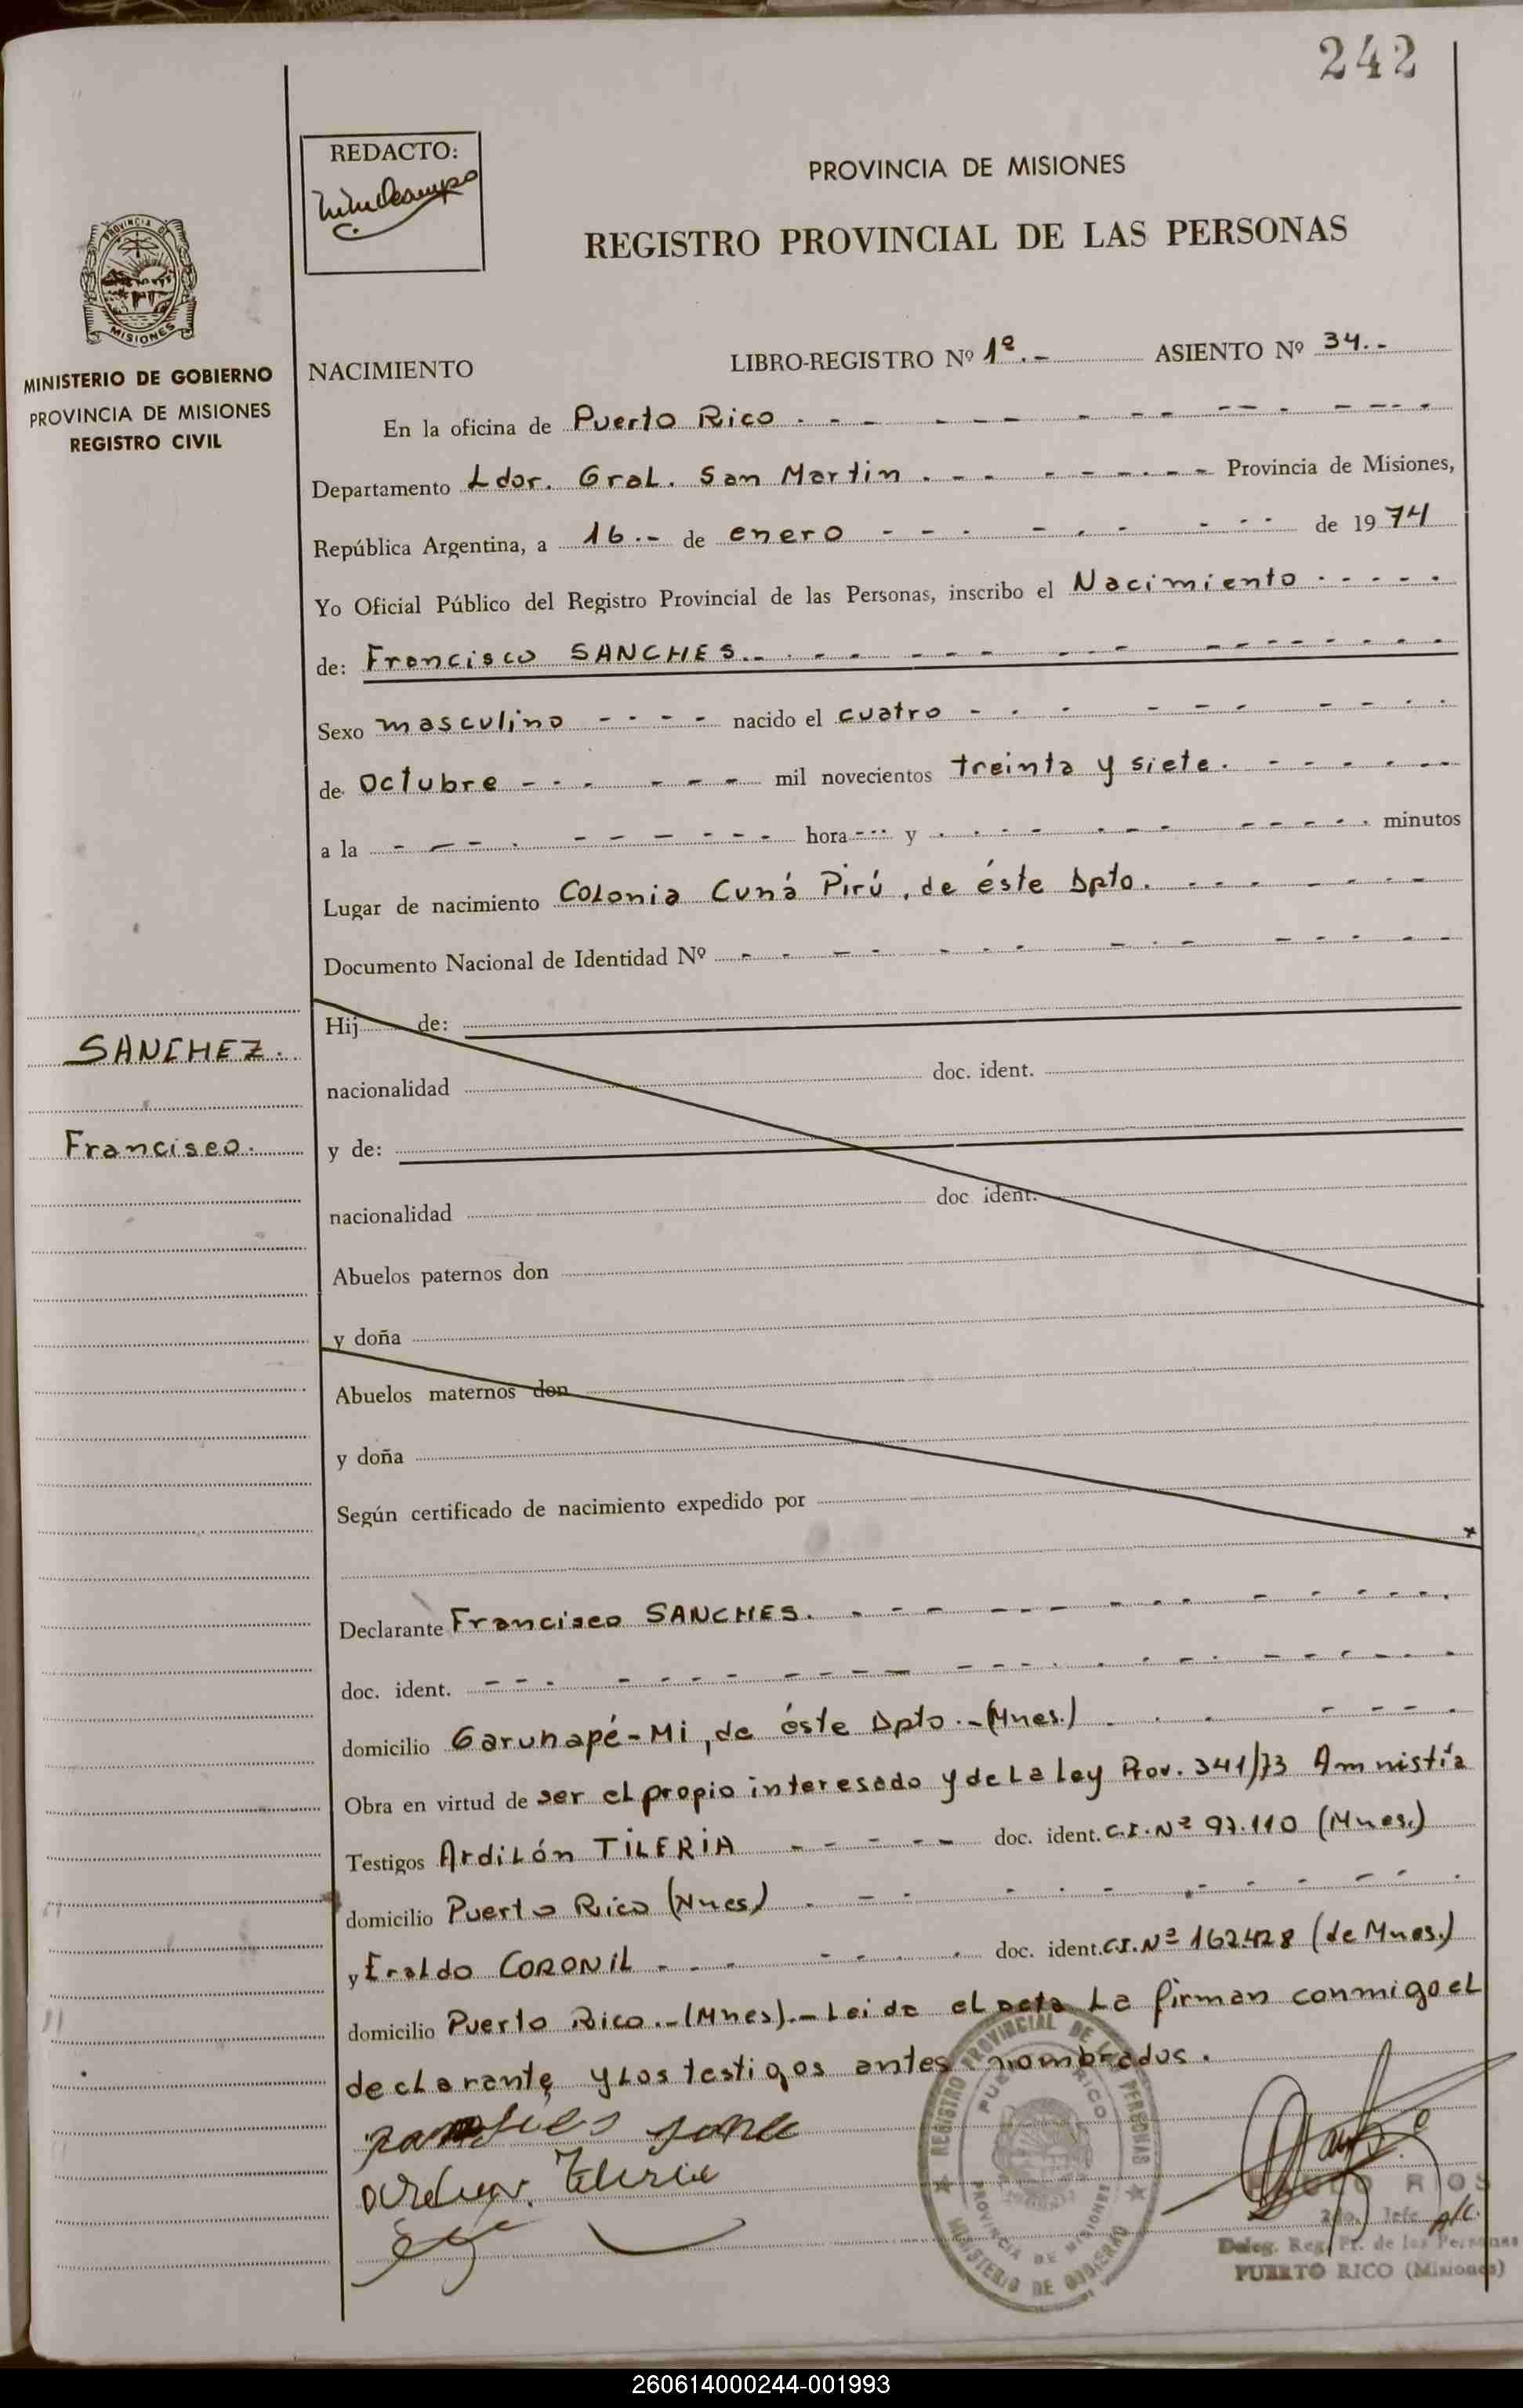 242
REDACTO:
PROVINCIA DE MISIONES
REGISTRO PROVINCIAL DE LAS PERSONAS
PROVINCIA D
MISIONES
MINISTERIO DE GOBIERNO
PROVINCIA DE MISIONES
REGISTRO CIVIL
NACIMIENTO LIBRO-REGISTRO Nº 1º.- ASIENTO Nº 34.-
En la oficina de Puerto Rico
Departamento Ldor. Gral. San Martin Provincia de Misiones,
República Argentina, a 16.- de enero de 1974
Yo Oficial Público del Registro Provincial de las Personas, inscribo el Nacimiento
de: Francisco SANCHES.
Sexo masculino nacido el cuatro
de Octubre mil novecientos treinta y siete.
a la hora y minutos
Lugar de nacimiento Colonia Cuñá Pirú, de éste Dpto.
Documento Nacional de Identidad Nº
Hij de:
SANCHEZ.
nacionalidad doc. ident.
Francisco.
y de:
nacionalidad doc ident.
Abuelos paternos don
y doña
Abuelos maternos don
y doña
Según certificado de nacimiento expedido por
Declarante Francisco SANCHES.
doc. ident.
domicilio Garuhapé-Mi, de éste Dpto.-(Mnes.)
Obra en virtud de ser el propio interesado y de La Ley Prov. 341/73 Amnistía
Testigos Ardilón TILERIA doc. ident. C.I. Nº 97.110 (Mnes.)
domicilio Puerto Rico (Mnes)
y Eraldo CORONIL doc. ident. C.I. Nº 162.428 (de Mnes.)
domicilio Puerto Rico.-(Mnes).- Leida el acta La firman conmigo el
declarante y Los testigos antes nombrados.
REGISTRO PROVINCIAL DE LAS PERSONAS
PUERTO RICO
PROVINCIA DE MISIONES
MINISTERIO DE GOBIERNO
RIOS
2do. Jefe A/C.
Deleg. Reg. Pr. de las Personas
PUERTO RICO (Misiones)
260614000244-001993